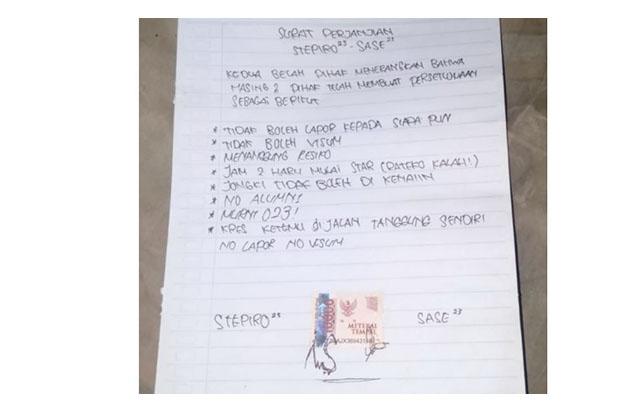 SURAT PERJANJIAN
STEPIRO²³ - SASE²³
KEDUA BELAH PIHAK MENERANGKAN BAHWA
MASING 2 PIHAK TELAH MEMBUAT PERSETUJUAN
SEBAGAI BERIKUT
* TIDAK BOLEH LAPOR KEPADA SIAPA PUN
* TIDAK BOLEH VISUM
* MENANGGUNG RESIKO
* JAM 2 HARU MULAI STAR (RATEKO KALAH!)
* JONGKI TIDAK BOLEH DI KENAIIN
* NO ALUMNI
* MURNI 023!
* KRES KETEMU di JALAN TANGGUNG SENDIRI
NO LAPOR NO VISUM
STEPIRO²³
METERAI
TEMPEL
SASE²³